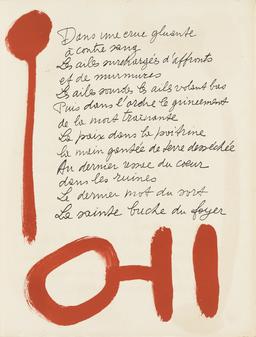 Dans une crue gluante
à contre sang
Les ailes surchargées d'affronts
et de murmures
Les ailes sourdes les ails volant bas
Puis dans l'ordre le grincement
de la mort traisante
La paix dans la poitrine
la main gantée de terre desséchée
Au dernier du cœur
dans les ruines
Le dernier mot du sort
La sainte buche du foyer